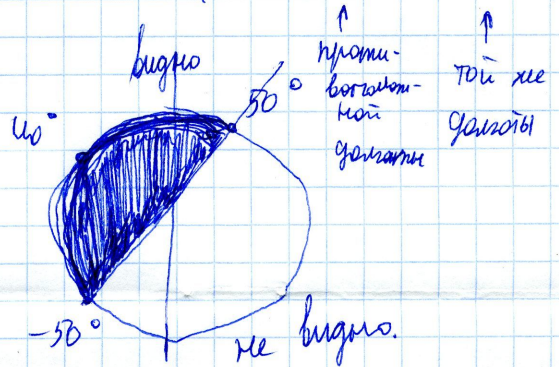 ↑ ↑
видно
50°
проти-
воположной
долготы
той же
долготы
40°
-50°
не видно.